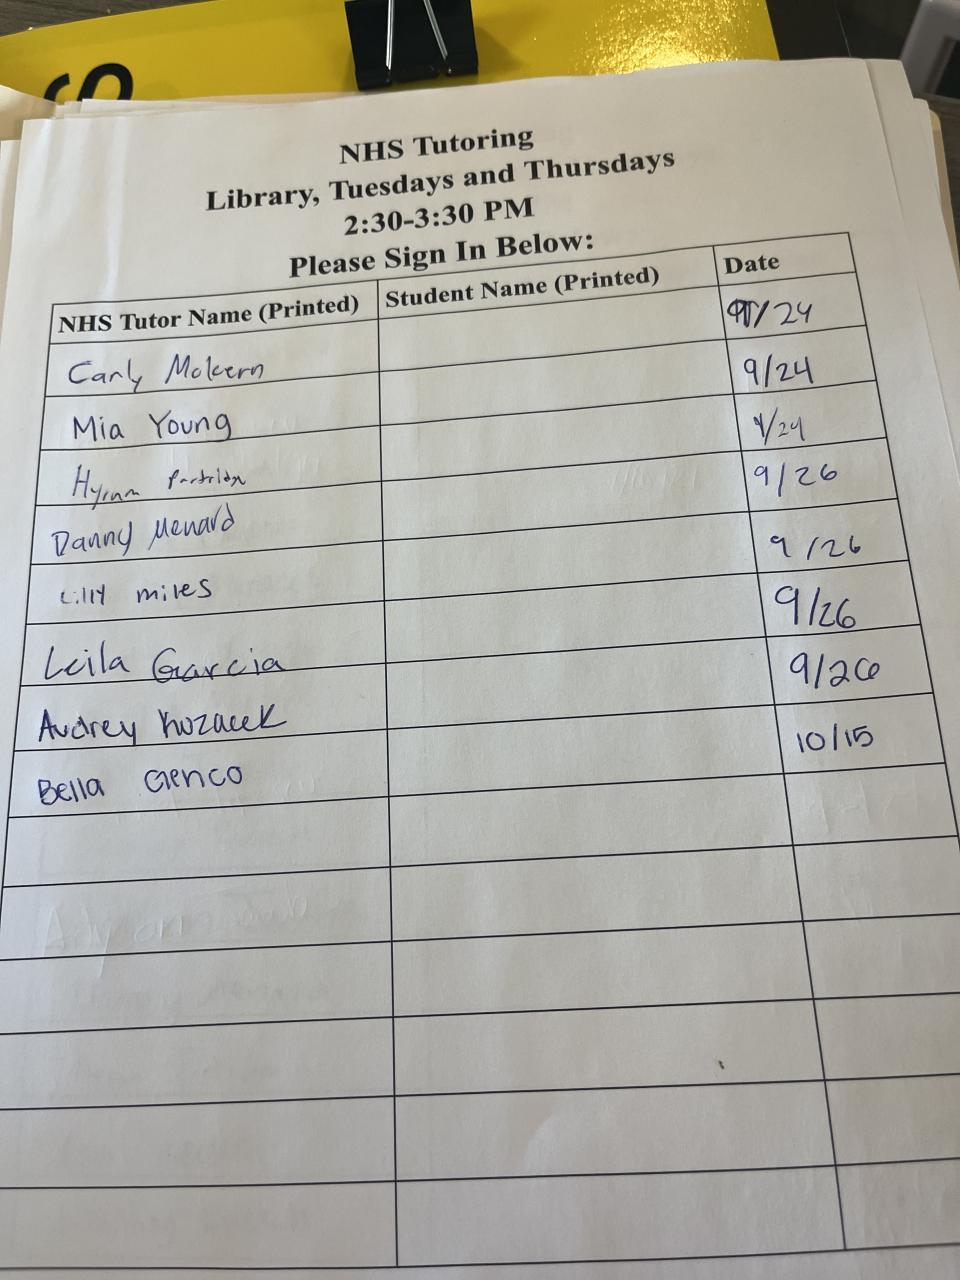 S
NHS Tutoring
Library, Tuesdays and Thursdays
2:30-3:30 PM
Please Sign In Below:
NHS Tutor Name (Printed) Student Name (Printed) Date
Carly 9/24
Mia Young 9/24
Hyrum 9/24
Danny Menard 9/26
Lilly miles 9/26
Leila Garcia 9/26
Audrey Kozacek 9/26
Bella Genco 10/15